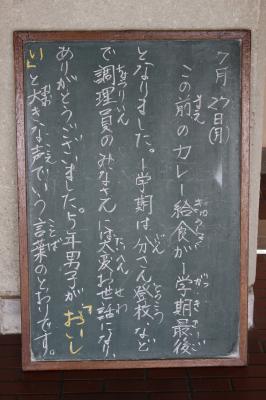 7月27日(月)
この前のカレー給食が一学期最後
となりました。一学期は分さん登校など
で調理員のみなさんには大変お世話になり、
ありがとうございました。5年男子が「おいし
い」と大きな声でいう言葉のとおりです。